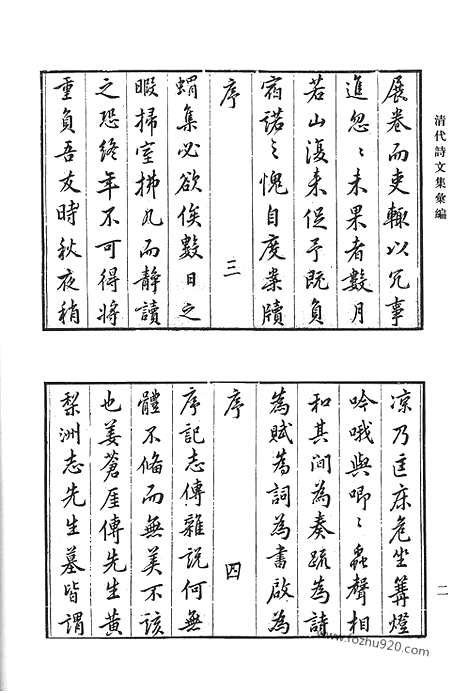 清代詩文集彙編
展卷而吏輙以冗事
進忽〻未果者數月
若山復来促予既負
宿諾之愧自度案牘
序 三
蝟集必欲俟數日之
暇掃室拂几而靜讀
之恐終年不可得將
重負吾友時秋夜稍
涼乃匡床危坐篝燈
吟哦與喞〻蟲聲相
和其間為奏疏為詩
為賦為詞為書啟為
序 四
序記志傳雜説何無
體不偹而無美不該
也姜蒼厓傳先生黄
梨洲志先生墓皆謂
二
www.fozhu920.com